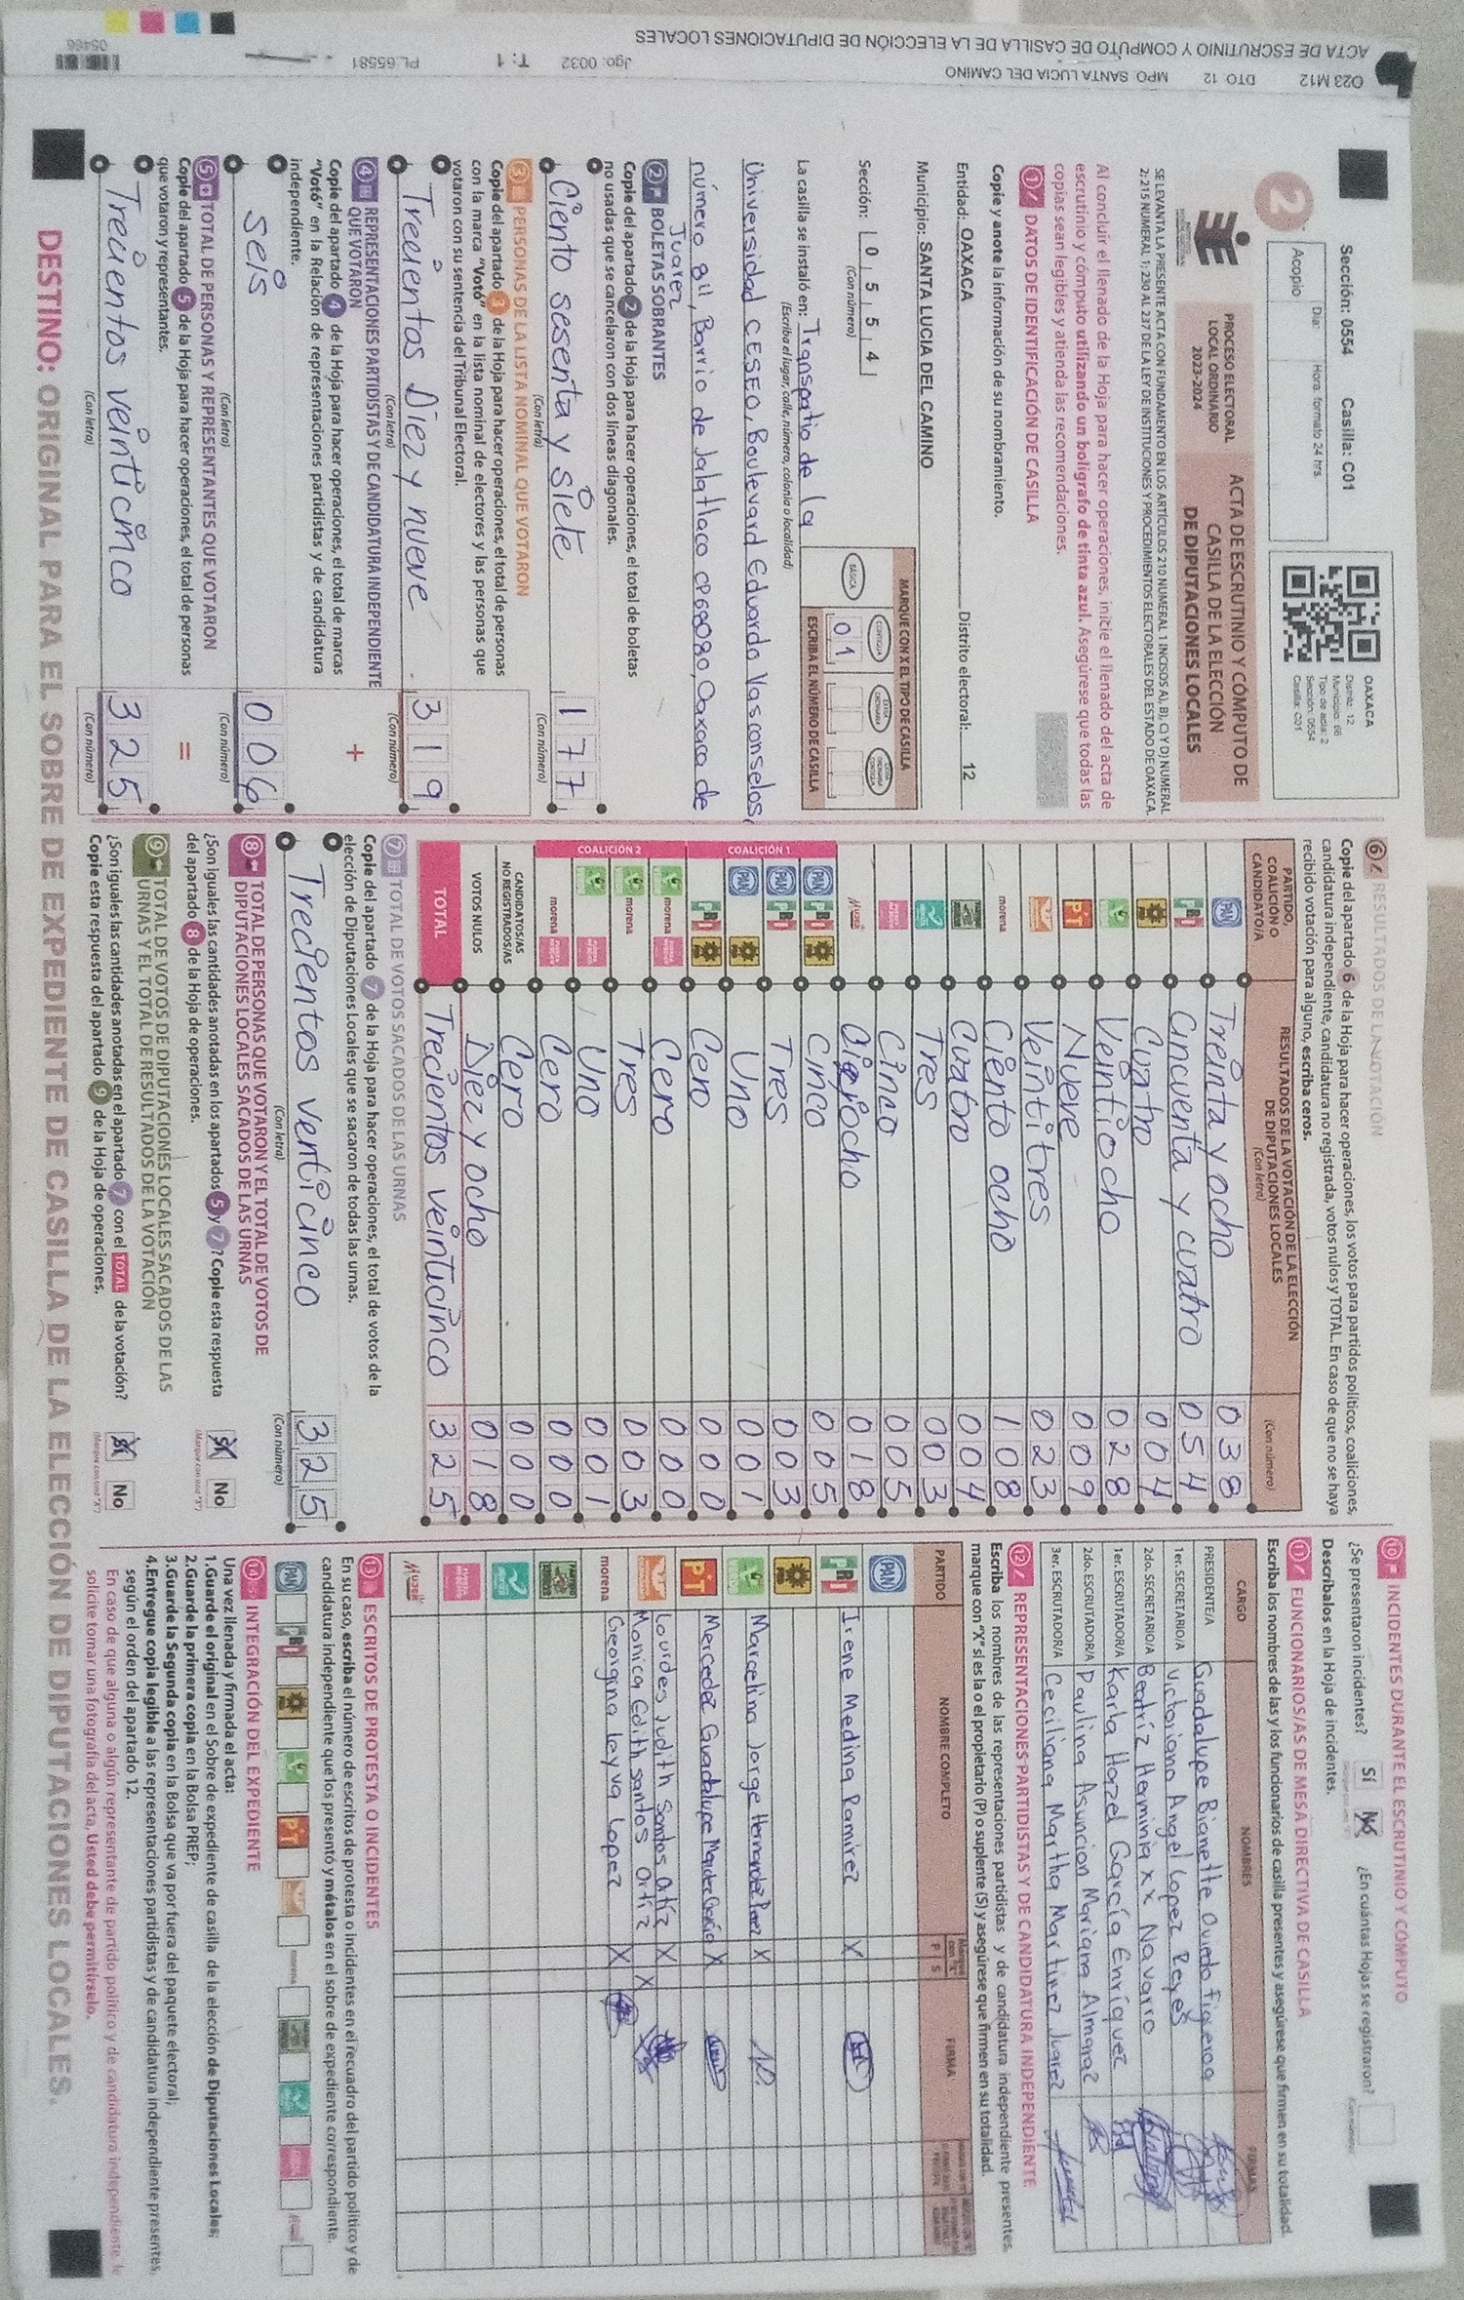 O23 M12 DTO 12 MPO SANTA LUCIA DEL CAMINO
ACTA DE ESCRUTINIO Y CÓMPUTO DE CASILLA DE LA ELECCIÓN DE DIPUTACIONES LOCALES
Jgo: 0032 T: 1 PL.65581
05466
Sección: 0554 Casilla: C01
Día: Hora: formato 24 hrs.
Acopio
2
OAXACA
Distrito: 12
Municipio: 66
Tipo de acta: 2
Sección: 0554
Casilla: C01
PROCESO ELECTORAL
LOCAL ORDINARIO
2023-2024
ACTA DE ESCRUTINIO Y CÓMPUTO DE
CASILLA DE LA ELECCIÓN
DE DIPUTACIONES LOCALES
SE LEVANTA LA PRESENTE ACTA CON FUNDAMENTO EN LOS ARTÍCULOS 210 NUMERAL 1 INCISOS A), B), C) Y D) NUMERAL
2; 215 NUMERAL 1); 230 AL 237 DE LA LEY DE INSTITUCIONES Y PROCEDIMIENTOS ELECTORALES DEL ESTADO DE OAXACA.
Al concluir el llenado de la Hoja para hacer operaciones, inicie el llenado del acta de
escrutinio y cómputo utilizando un bolígrafo de tinta azul. Asegúrese que todas las
copias sean legibles y atienda las recomendaciones.
1 DATOS DE IDENTIFICACIÓN DE CASILLA
Copie y anote la información de su nombramiento.
Entidad: OAXACA Distrito electoral: 12
Municipio: SANTA LUCIA DEL CAMINO
Sección: 0 5 5 4
(Con número)
MARQUE CON X EL TIPO DE CASILLA
BÁSICA CONTIGUA
ESCRIBA EL NÚMERO DE CASILLA
0 1
La casilla se instaló en: Transpatio de la
(Escriba el lugar, calle, número, colonia o localidad)
Universidad CESEO, Boulevard Eduardo Vasconselos,
número 811, Barrio de Jalatlaco CP 68080, Oaxaca de
Juarez
2 BOLETAS SOBRANTES
Copie del apartado 2 de la Hoja para hacer operaciones, el total de boletas
no usadas que se cancelaron con dos líneas diagonales.
Ciento sesenta y siete 1 7 7
(Con letra) (Con número)
3 PERSONAS DE LA LISTA NOMINAL QUE VOTARON
Copie del apartado 3 de la Hoja para hacer operaciones, el total de personas
con la marca "Votó" en la lista nominal de electores y las personas que
votaron con su sentencia del Tribunal Electoral.
Trecientos Diez y nueve 3 1 9
(Con letra) (Con número)
4 REPRESENTACIONES PARTIDISTAS Y DE CANDIDATURA INDEPENDIENTE
QUE VOTARON
+
Copie del apartado 4 de la Hoja para hacer operaciones, el total de marcas
"Votó" en la Relación de representaciones partidistas y de candidatura
independiente.
seis 0 0 6
(Con letra) (Con número)
5 TOTAL DE PERSONAS Y REPRESENTANTES QUE VOTARON
=
Copie del apartado 5 de la Hoja para hacer operaciones, el total de personas
que votaron y representantes.
Trecientos veinticinco 3 2 5
(Con letra) (Con número)
6 RESULTADOS DE LA VOTACIÓN
Copie del apartado 6 de la Hoja para hacer operaciones, los votos para partidos políticos, coaliciones,
candidatura independiente, candidatura no registrada, votos nulos y TOTAL. En caso de que no se haya
recibido votación para alguno, escriba ceros.
PARTIDO,
COALICIÓN O
CANDIDATO/A
RESULTADOS DE LA VOTACIÓN DE LA ELECCIÓN
DE DIPUTACIONES LOCALES
(Con letra) (Con número)
PAN Treinta y ocho 0 3 8
PRI Cincuenta y cuatro 0 5 4
PRD Cuatro 0 0 4
Veintiocho 0 2 8
PT Nueve 0 0 9
Veintitres 0 2 3
morena Ciento ocho 1 0 8
Cuatro 0 0 4
Tres 0 0 3
Cinco 0 0 5
Mujer Dieciocho 0 1 8
COALICIÓN 1
PAN PRI PRD Cinco 0 0 5
PAN PRI Tres 0 0 3
PAN PRD Uno 0 0 1
PRI PRD Cero 0 0 0
COALICIÓN 2
morena Cero 0 0 0
morena Tres 0 0 3
Uno 0 0 1
morena Cero 0 0 0
CANDIDATOS/AS
NO REGISTRADOS/AS Cero 0 0 0
VOTOS NULOS Diez y ocho 0 1 8
TOTAL Trecientos veinticinco 3 2 5
7 TOTAL DE VOTOS SACADOS DE LAS URNAS
Copie del apartado 7 de la Hoja para hacer operaciones, el total de votos de la
elección de Diputaciones Locales que se sacaron de todas las urnas.
Trecientos venticinco 3 2 5
(Con letra) (Con número)
8 TOTAL DE PERSONAS QUE VOTARON Y EL TOTAL DE VOTOS DE
DIPUTACIONES LOCALES SACADOS DE LAS URNAS
¿Son iguales las cantidades anotadas en los apartados 5 y 7? Copie esta respuesta
del apartado 8 de la Hoja de operaciones.
Sí No
(Marque con una "X")
9 TOTAL DE VOTOS DE DIPUTACIONES LOCALES SACADOS DE LAS
URNAS Y EL TOTAL DE RESULTADOS DE LA VOTACIÓN
¿Son iguales las cantidades anotadas en el apartado 7 con el TOTAL de la votación?
Copie esta respuesta del apartado 9 de la Hoja de operaciones.
Sí No
(Marque con una "X")
10 INCIDENTES DURANTE EL ESCRUTINIO Y CÓMPUTO
¿Se presentaron incidentes? Sí No ¿En cuántas Hojas se registraron?
Descríbalos en la Hoja de incidentes.
11 FUNCIONARIOS/AS DE MESA DIRECTIVA DE CASILLA
Escriba los nombres de las y los funcionarios de casilla presentes y asegúrese que firmen en su totalidad.
CARGO NOMBRES FIRMAS
PRESIDENTE/A Guadalupe Bianette Oviedo Figueroa
1er. SECRETARIO/A Victoriano Angel Lopez Reyes
2do. SECRETARIO/A Beatríz Herminia xx Navarro
1er. ESCRUTADOR/A Karla Hazel García Enríquez
2do. ESCRUTADOR/A Paulina Asuncion Mariana Almaraz
3er. ESCRUTADOR/A Ceciliana Martha Martinez Juarez
12 REPRESENTACIONES PARTIDISTAS Y DE CANDIDATURA INDEPENDIENTE
Escriba los nombres de las representaciones partidistas y de candidatura independiente presentes,
marque con "X" si es la o el propietario (P) o suplente (S) y asegúrese que firmen en su totalidad.
PARTIDO NOMBRE COMPLETO P S FIRMA
PAN
PRI Irene Medina Ramirez X
PRD
Marcelino Jorge Hernandez Perez X
PT Mercedez Guadalupe Mendez García X
Lourdes Judith Santos Ortíz X
Monica Edith santos Ortiz X
morena Georgina leyva lopez X
Mujer
13 ESCRITOS DE PROTESTA O INCIDENTES
En su caso, escriba el número de escritos de protesta o incidentes en el recuadro del partido político y de
candidatura independiente que los presentó y métalos en el sobre de expediente correspondiente.
PAN PRI PRD PT morena
14 INTEGRACIÓN DEL EXPEDIENTE
Una vez llenada y firmada el acta:
1.Guarde el original en el Sobre de expediente de casilla de la elección de Diputaciones Locales;
2.Guarde la primera copia en la Bolsa PREP;
3.Guarde la Segunda copia en la Bolsa que va por fuera del paquete electoral;
4.Entregue copia legible a las representaciones partidistas y de candidatura independiente presentes
según el orden del apartado 12.
En caso de que alguna o algún representante de partido político y de candidatura independiente, le
solicite tomar una fotografía del acta, Usted debe permitírselo.
DESTINO: ORIGINAL PARA EL SOBRE DE EXPEDIENTE DE CASILLA DE LA ELECCIÓN DE DIPUTACIONES LOCALES.